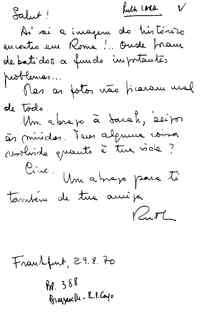 Salut!
Aí sai a imagem do histórico
encontro em Roma!.. Onde foram
debatidos a fundo importantes
problemas...
Mas as fotos não ficaram mal
de todo.
Um abraço à Sarah, beijos
às miúdas. Tens alguma coisa
resolvida quanto à tua vida?
Ciao.
Um abraço para ti
também da tua amiga
Ruth
Frankfurt, 29.8.70